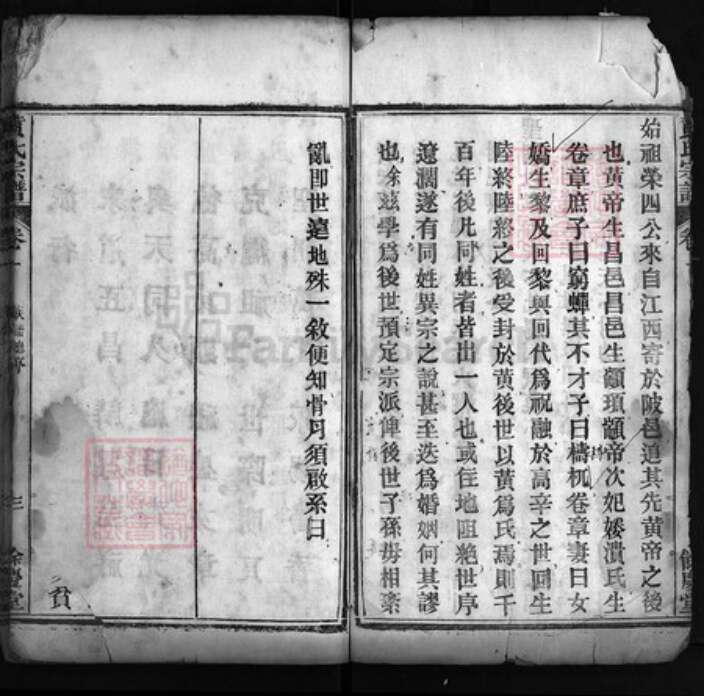 始祖榮四公來自江西寄於陂邑道其先黃帝之後
也黃帝生昌邑昌邑生顓頊顓帝次妃娞潰氏生
卷章庶子曰窮蟬其不才子曰檮杌卷章妻曰女
嬌生黎及回黎與回代爲祝融於高辛之世回生
陸終陸終之後受封於黃後世以黃爲氏焉則千
百年後凡同姓者皆出一人也或在地阻絶世序
遼濶遂有同姓異宗之說甚至迭爲婚姻何其謬
也餘兹學爲後世預定宗派俾後世子孫毋相紊
亂即世遠地殊一敘便知骨肉須啟系曰
黃氏宗譜
卷一
三
餘慶堂
貧
FamilySearch